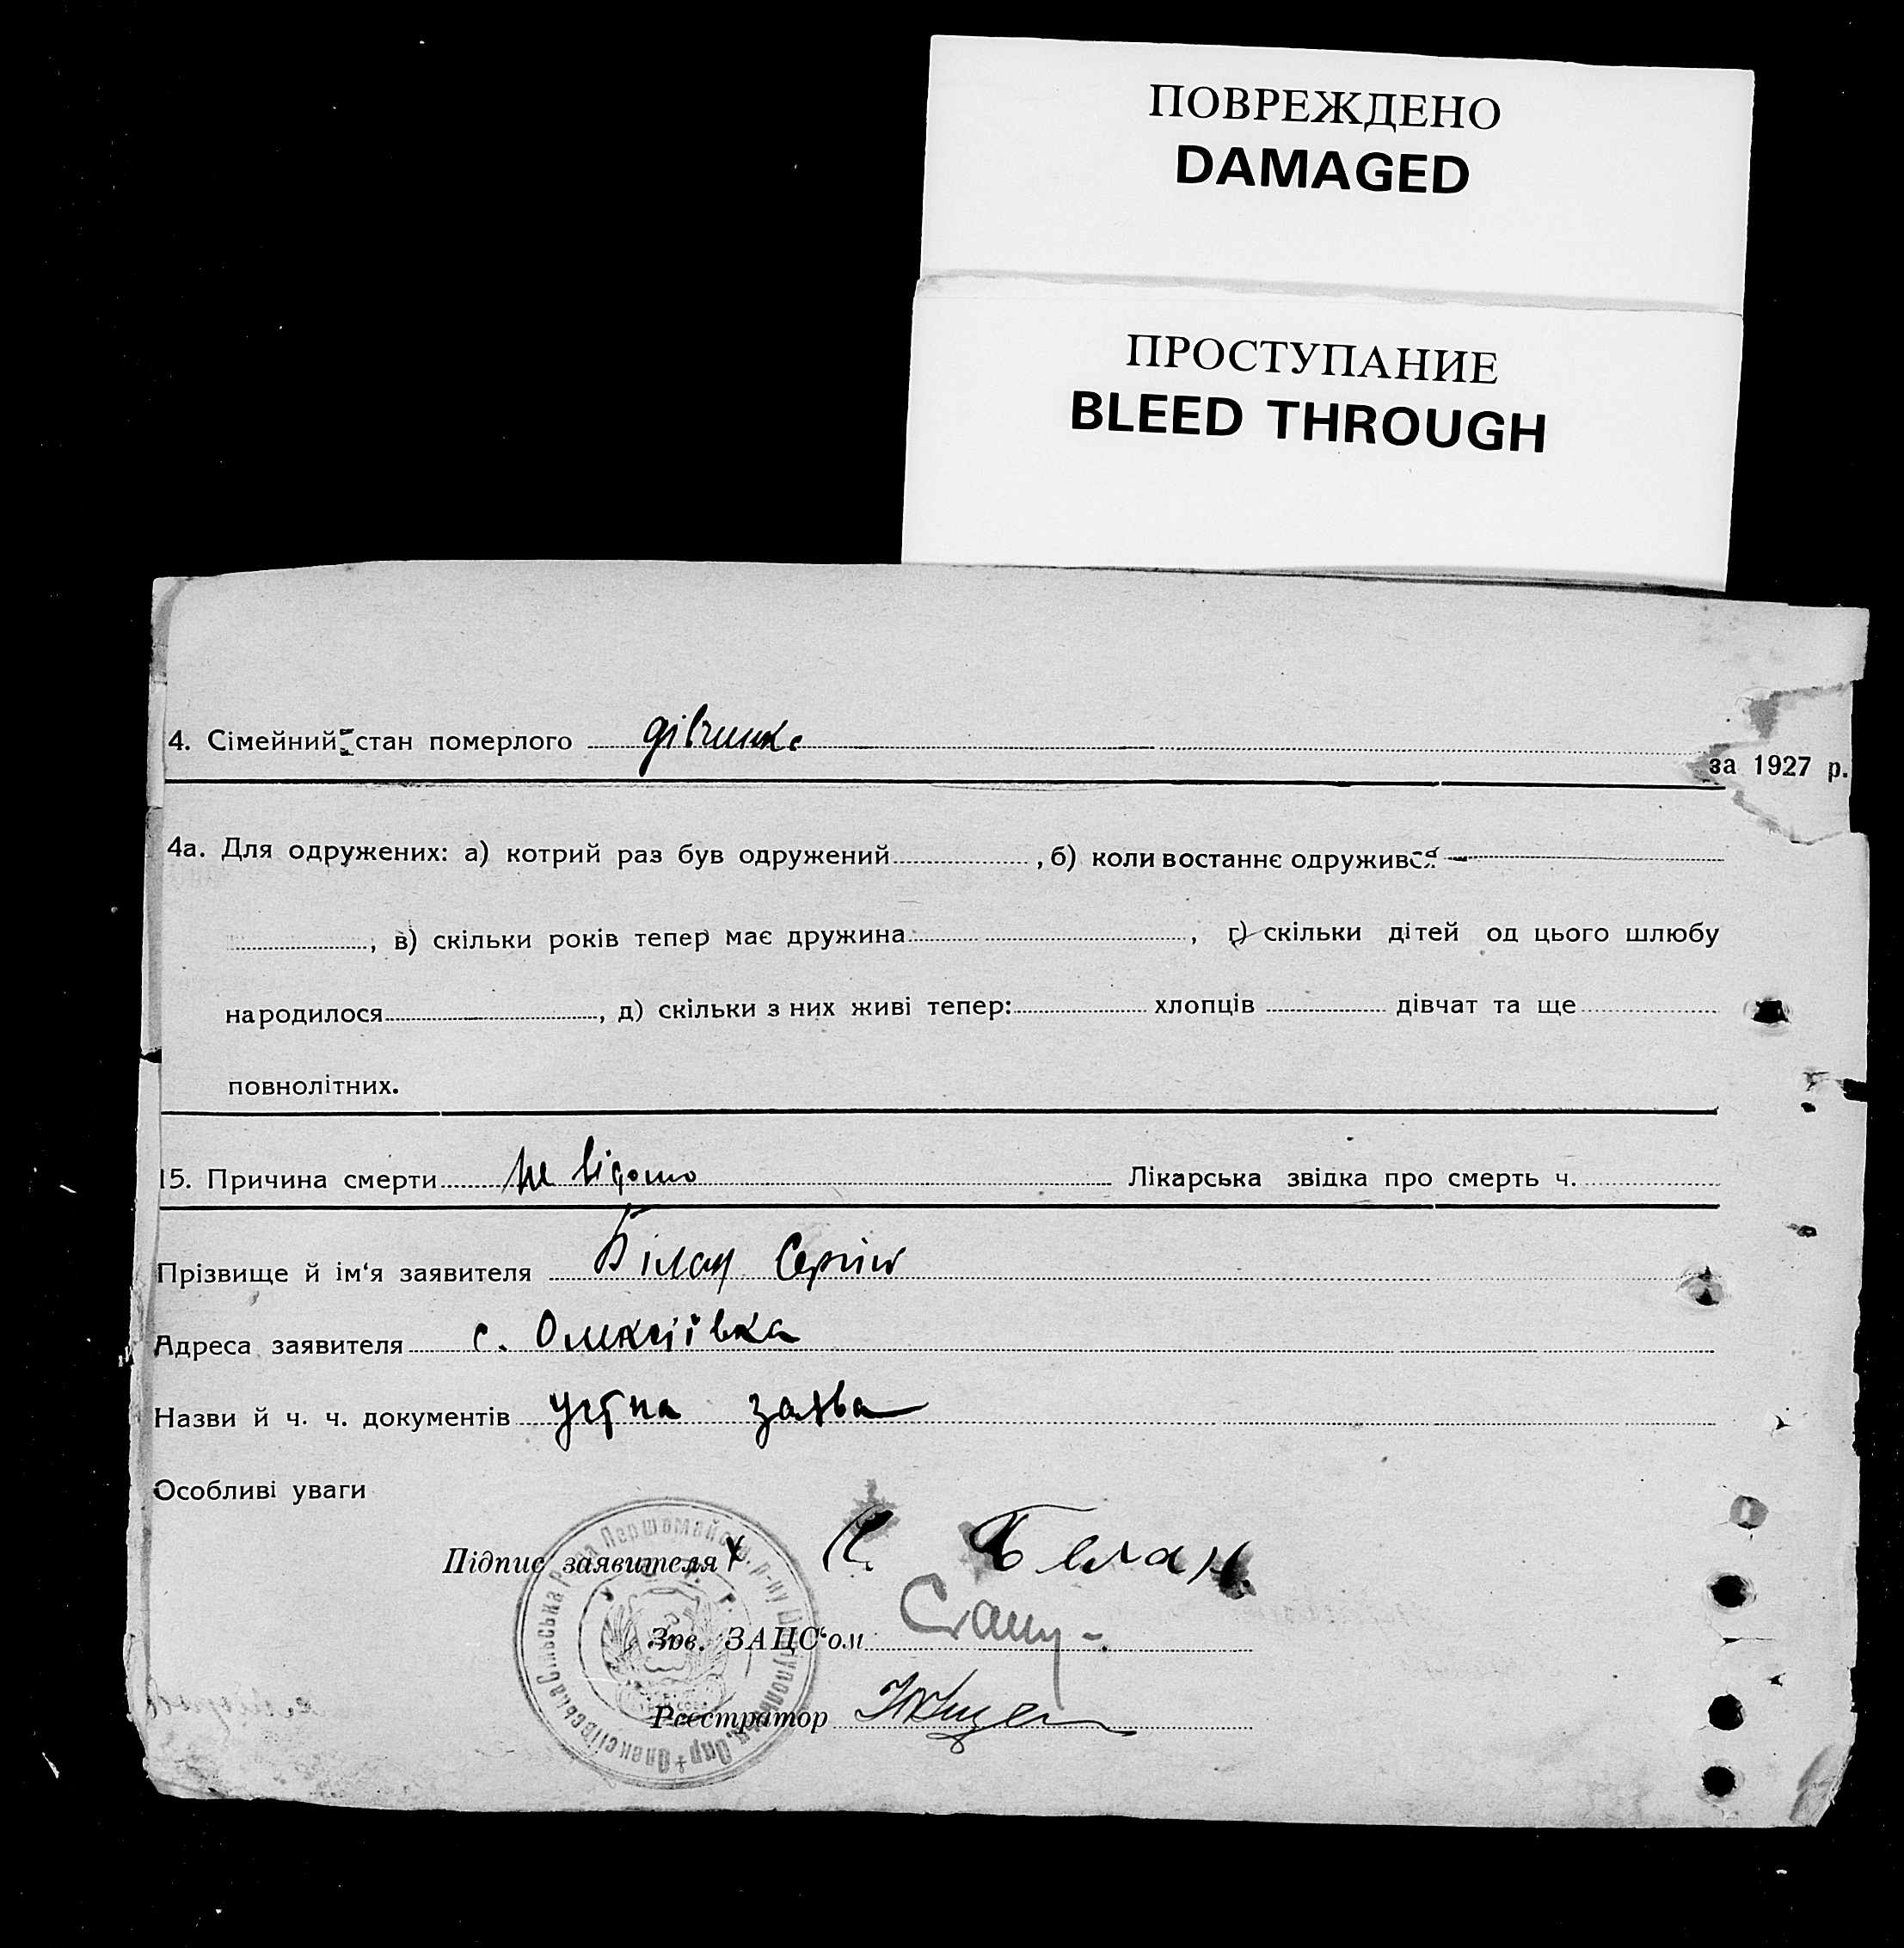 ПОВРЕЖДЕНО
DAMAGED
ПРОСТУПАНИЕ
BLEED THROUGH
4. Сімейний стан померлого дівчинка
за 1927 р.
4а. Для одружених: а) котрий раз був одружений , б) коли востаннє одружився
, в) скільки років тепер має дружина , г) скільки дітей од цього шлюбу
народилося , д) скільки з них живі тепер: хлопців дівчат та ще
повнолітних.
15. Причина смерти не відомо Лікарська звідка про смерть ч.
Прізвище й ім‘я заявителя Білан Сергій
Адреса заявителя с. Олексіївка
Назви й ч. ч. документів устна заява
Особливі уваги
Підпис заявителя С. Белан
Зав. ЗАЦС‘ом
Реєстратор
Олексіївська Сільська Рада Першомайськ. р-ну